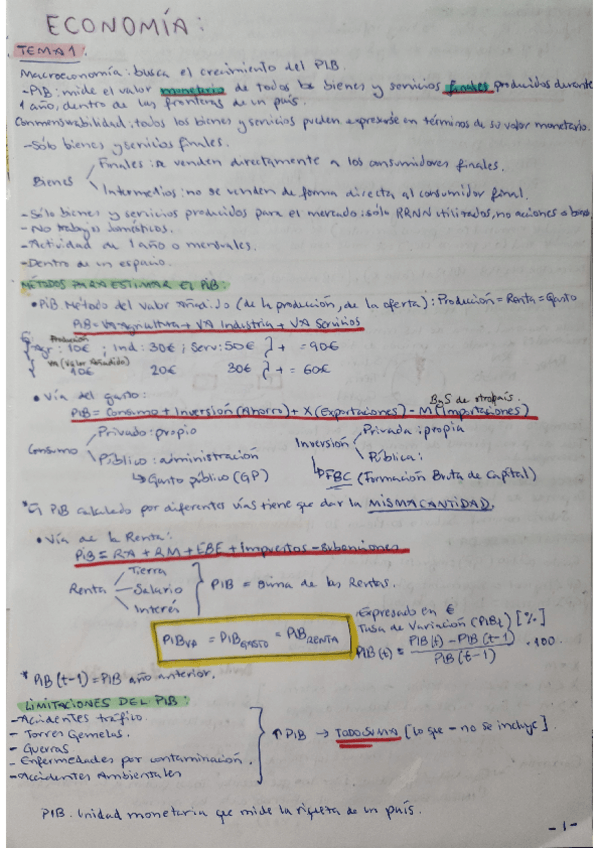 ECONOMÍA:
TEMA 1:
Macroeconomía: busca el crecimiento del PIB.
-PIB: mide el valor monetario de todos los bienes y servicios finales producidos durante
1 año, dentro de las fronteras de un país.
Conmensurabilidad: todos los bienes y servicios pueden expresarse en términos de su valor monetario.
-Sólo bienes y servicios finales.
Bienes
Finales: se venden directamente a los consumidores finales.
Intermedios: no se venden de forma directa al consumidor final.
-Sólo bienes y servicios producidos para el mercado: sólo RRNN utilizados, no acciones o
-No trabajos domésticos.
-Actividad de 1 año o mensuales.
-Dentro de un espacio.
MÉTODOS PARA ESTIMAR EL PIB:
• PIB Método del valor añadido (de la producción, de la oferta): Producción = Renta = Gasto
PIB = VA Agricultura + VA Industria + VA Servicios
Producción
Agr: 10€ ; Ind: 30€ ; Serv: 50€ } + = 90€
VA (Valor Añadido)
10€ 20€ 30€ } + = 60€
• Vía del gasto:
ByS de otro país.
PIB = Consumo + Inversión (Ahorro) + X (Exportaciones) - M (Importaciones)
Consumo
Privado: propio
Público: administración
↳ Gasto público (GP)
Inversión
Privada: propia
Pública:
↳ FBC (Formación Bruta de Capital)
* El PIB calculado por diferentes vías tiene que dar la MISMA CANTIDAD.
• Vía de la Renta:
PIB = RA + RM + EBE + Impuestos - Subvenciones
Renta
Tierra
Salario
Interés
PIB = Suma de las Rentas.
PIB VA = PIB GASTO = PIB RENTA
Expresado en €
Tasa de Variación (PIBt) [%]
PIB(t) = PIB(t) - PIB(t-1) / PIB(t-1) · 100.
* PIB (t-1) = PIB año anterior.
LIMITACIONES DEL PIB:
-Accidentes tráfico.
- Torres Gemelas.
- Guerras
- Enfermedades por contaminación.
-Accidentes Ambientales
↑ PIB → TODO SUMA [Lo que - no se incluye].
PIB: Unidad monetaria que mide la riqueza de un país.
-1-